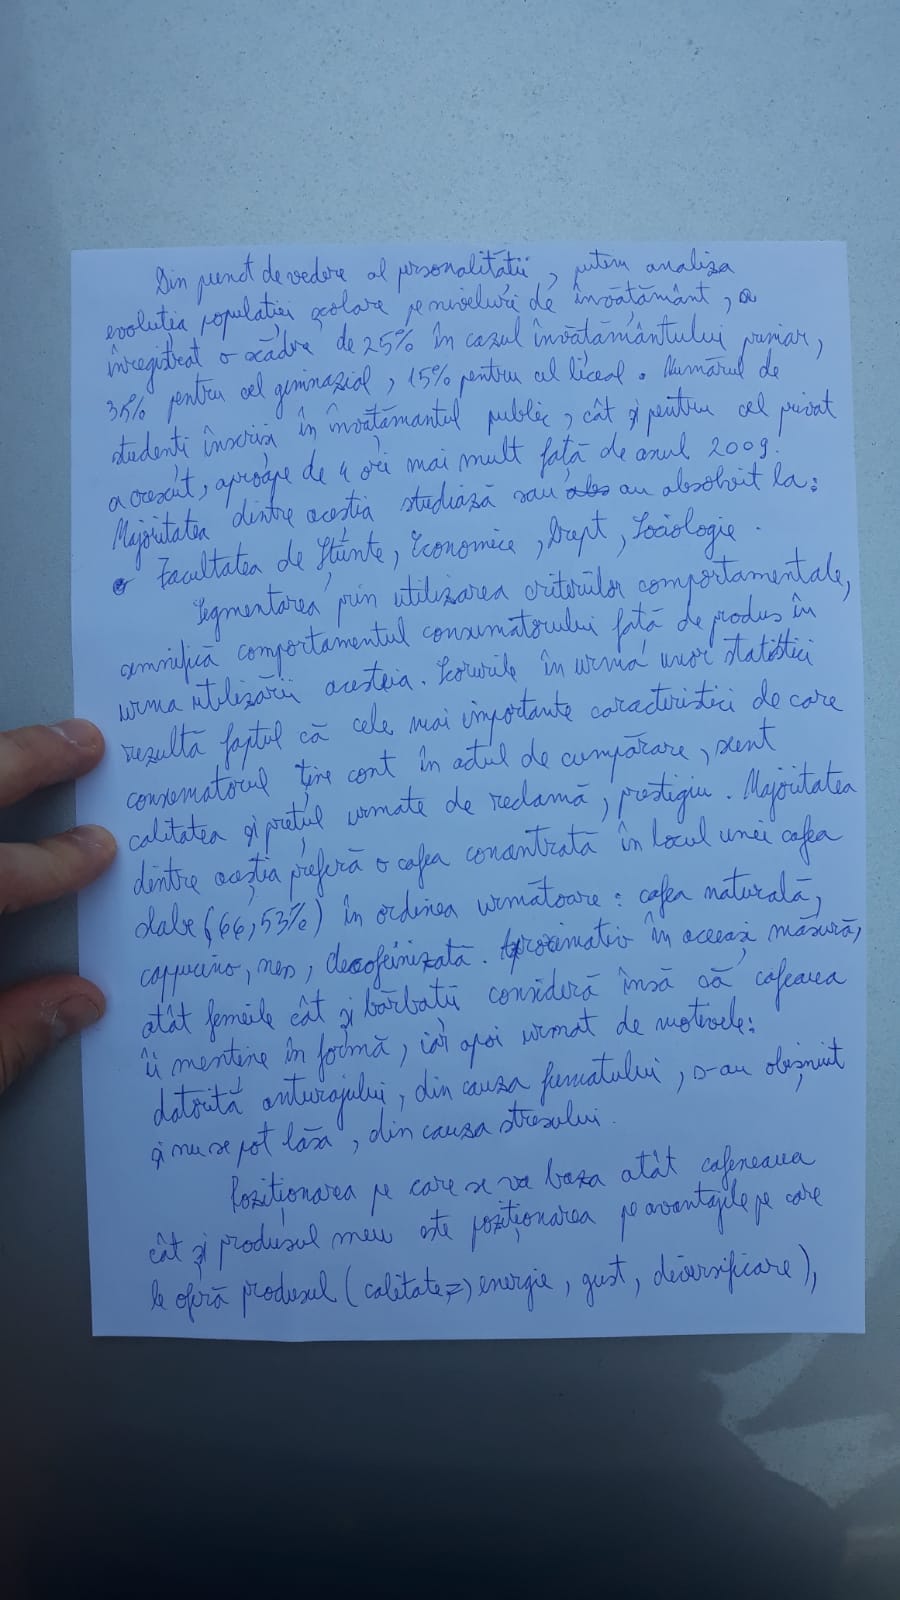 Din punct de vedere al personalității, putem analiza
evoluția populației școlare pe niveluri de învățământ, a
înregistrat o scădre de 25% în cazul învățământului primar,
35% pentru cel gimnazial, 15% pentru cel liceal. Numărul de
studenți înscrisi în învățămantul public, cât și pentru cel privat
a crescut, aproape de 4 ori mai mult față de anul 2009.
Majoritatea dintre aceștia studiază sau abs au absolvit la:
• Facultatea de Științe, Economice, Drept, Sociologie.
Segmentarea prin utilizarea criteriilor comportamentale,
semnifică comportamentul consumatorului față de produs în
urma utilizării acesteia. Scorurile în urma unor statistici
rezultă faptul că cele mai importante caracteristici de care
consumatorul ține cont în actul de cumpărare, sunt
calitatea și prețul urmate de reclamă, prestigiu. Majoritatea
dintre aceștia preferă o cafea concentrată în locul unei cafea
slabe (66,53%) în ordinea următoare: cafea naturală,
cappucino, nes, decofeinizată. Aproximativ în aceeași măsură,
atât femeile cât și bărbații consideră însă că cafeaua
îi menține în formă, iar apoi urmat de motivele:
datorită anturajului, din cauza fumatului, s-au obișnuit
și nu se pot lăsa, din cauza stresului.
Poziționarea pe care se va baza atât cafeneaua
cât și produsul meu este poziționarea pe avantajele pe care
le oferă produsul (calitate=> energie, gust, diversificare),